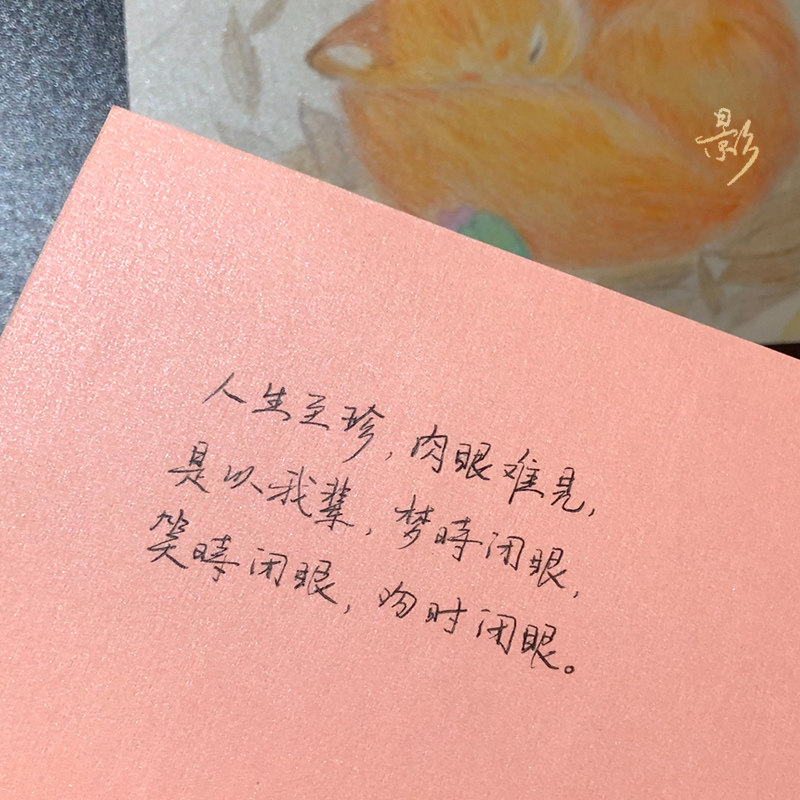 影
人生至珍,肉眼难见,
是以我辈,梦時闭眼,
笑時闭眼,吻时闭眼。